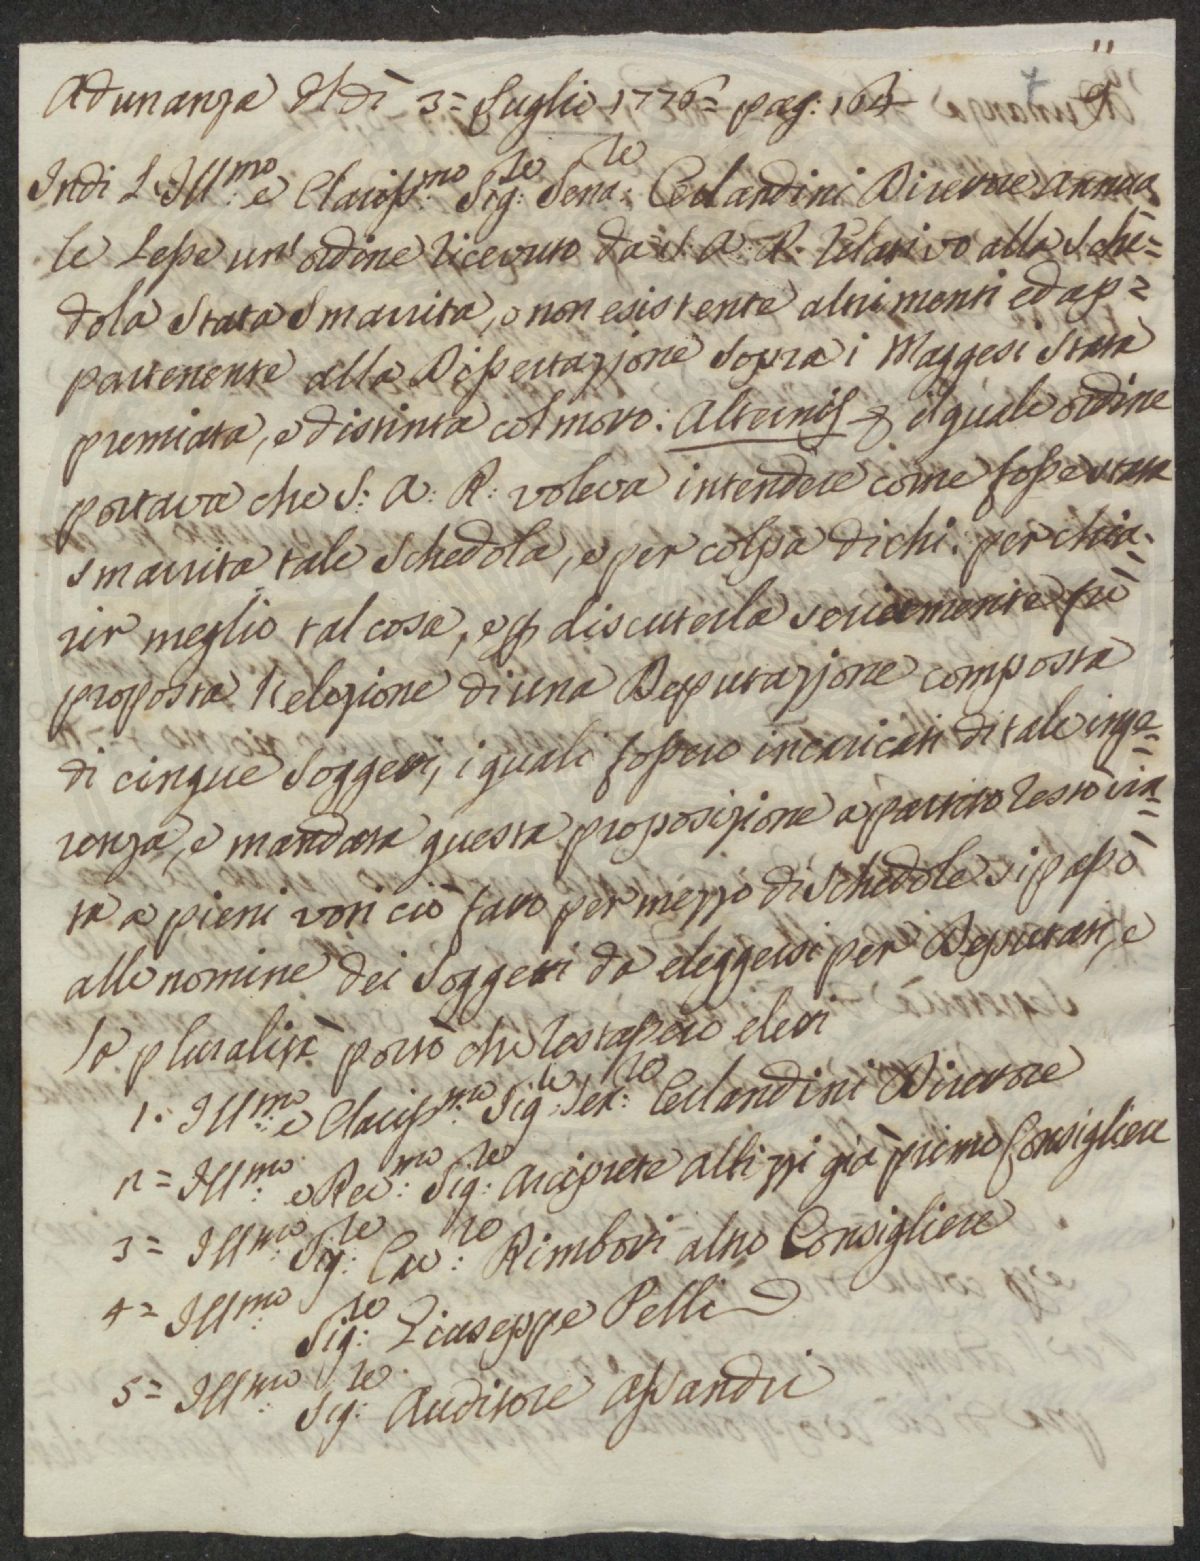 11
Adunanza del dì 3= Luglio 1776= pag: 164 9
Indi L'Ill:mo e Clariss:mo Sig:re Sena:re Cerlandini Direttore annua
le Lesse un' ordine ricevuto da S: A: R. relativo alla Sche=
dola Stata Smarrita, o non esistente altrimenti ed ap=
partenente alla Dissertazione Sopra i Maggesi Stata
premiata, e distinta col moto: Alternis il quale ordine
portava che S: A: R: voleva intendere come fosse stata
smarrita tale Schedola, e per colpa di chi. per chia=
rir meglio tal cosa, e p discuterla seriamente fù
proposta l'elezione di una Deputazione composta
di cinque Soggetti, i quali fossero incaricati di tale inge=
renza, e mandata questa proposizione a partito restò vin=
ta a pieni voti ciò fatto per mezzo di Schedole si passò
alle nomine dei Soggetti da eleggersi per Deputati, e
la pluralità portò che restassero eletti
1. Ill:mo e Clariss:mo Sig:re Sen:re Cerlandini Direttore
2= Ill:mo e Rev:mo Sig:re Arciprete Albizzi già primo Consigliere
3= Ill:mo Sig:re Cav:re Rimbotti altro Consigliere
4= Ill:mo Sig:re Giuseppe Pelli
5= Ill:mo Sig:re Auditore Assandri